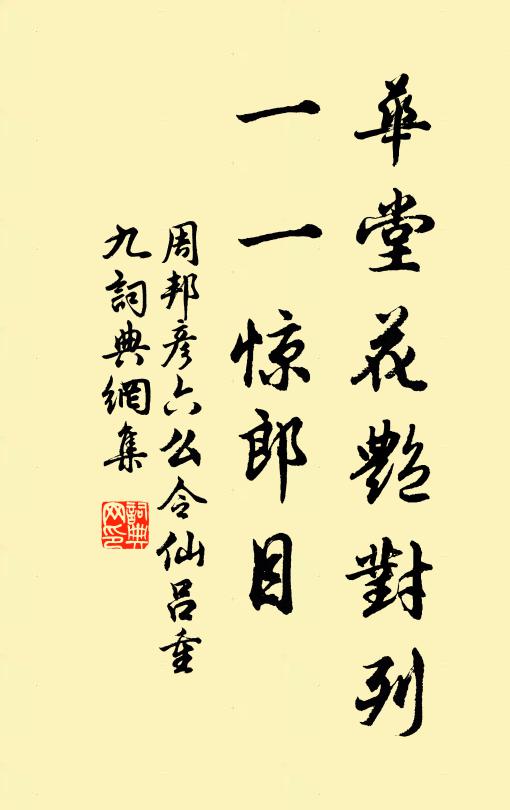 華堂花艷對列
一一惊郎目
周邦彦六么令仙呂重
九詞典網集
詞典
网印